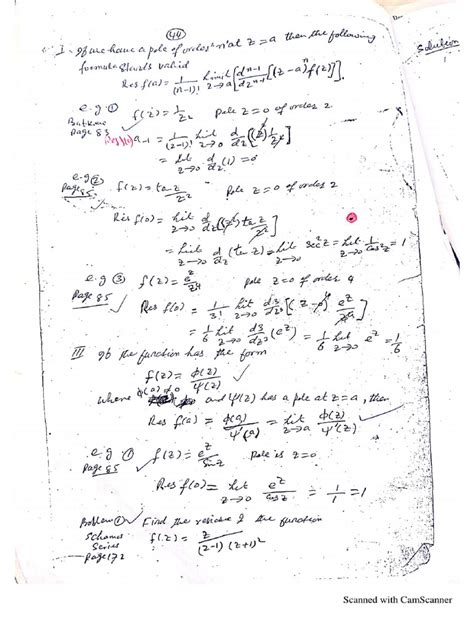 (44)
I- If we have a pole of order 'n' at z = a then the following
Solution
formula stands valid
Res f(a) = 1/(n-1)! limit z→a [d^(n-1)/dz^(n-1) [(z-a)^n f(z)]].
e.g ① f(z) = 1/z² Pole z=0 of order 2
Page 85 a₋₁ = 1/(2-1)! lit z→0 d/dz [(z²) 1/z²]
= lit z→0 d/dz (1) = 0
e.g ② f(z) = tan z/z² Pole z=0 of order 2
Page 85
Res f(0) = lit z→0 d/dz [(z²) tan z/z²]
= lit z→0 d/dz (tan z) = lit z→0 sec² z = lit z→0 1/cos² z = 1
e.g ③ f(z) = e^z/z⁴ Pole z=0 of order 4
Page 85 Res f(0) = 1/3! lit z→0 d³/dz³ [(z-0)⁴ e^z/z⁴]
= 1/6 lit z→0 d³/dz³ (e^z) = 1/6 lit z→0 e^z = 1/6
III If the function has the form
f(z) = φ(z)/ψ(z)
where φ(a) ≠ 0 and ψ(z) has a pole at z = a, then
Res f(a) = φ(a)/ψ'(a) = lit z→a φ(z)/ψ'(z)
e.g ① f(z) = e^z/sin z Pole is z=0
Page 85
Res f(0) = lit z→0 e^z/cos z = 1/1 = 1
Problem ① Find the residue of the function
Schaums Series Page 172 f(z) = z/(z-1)(z+1)²
Scanned with CamScanner